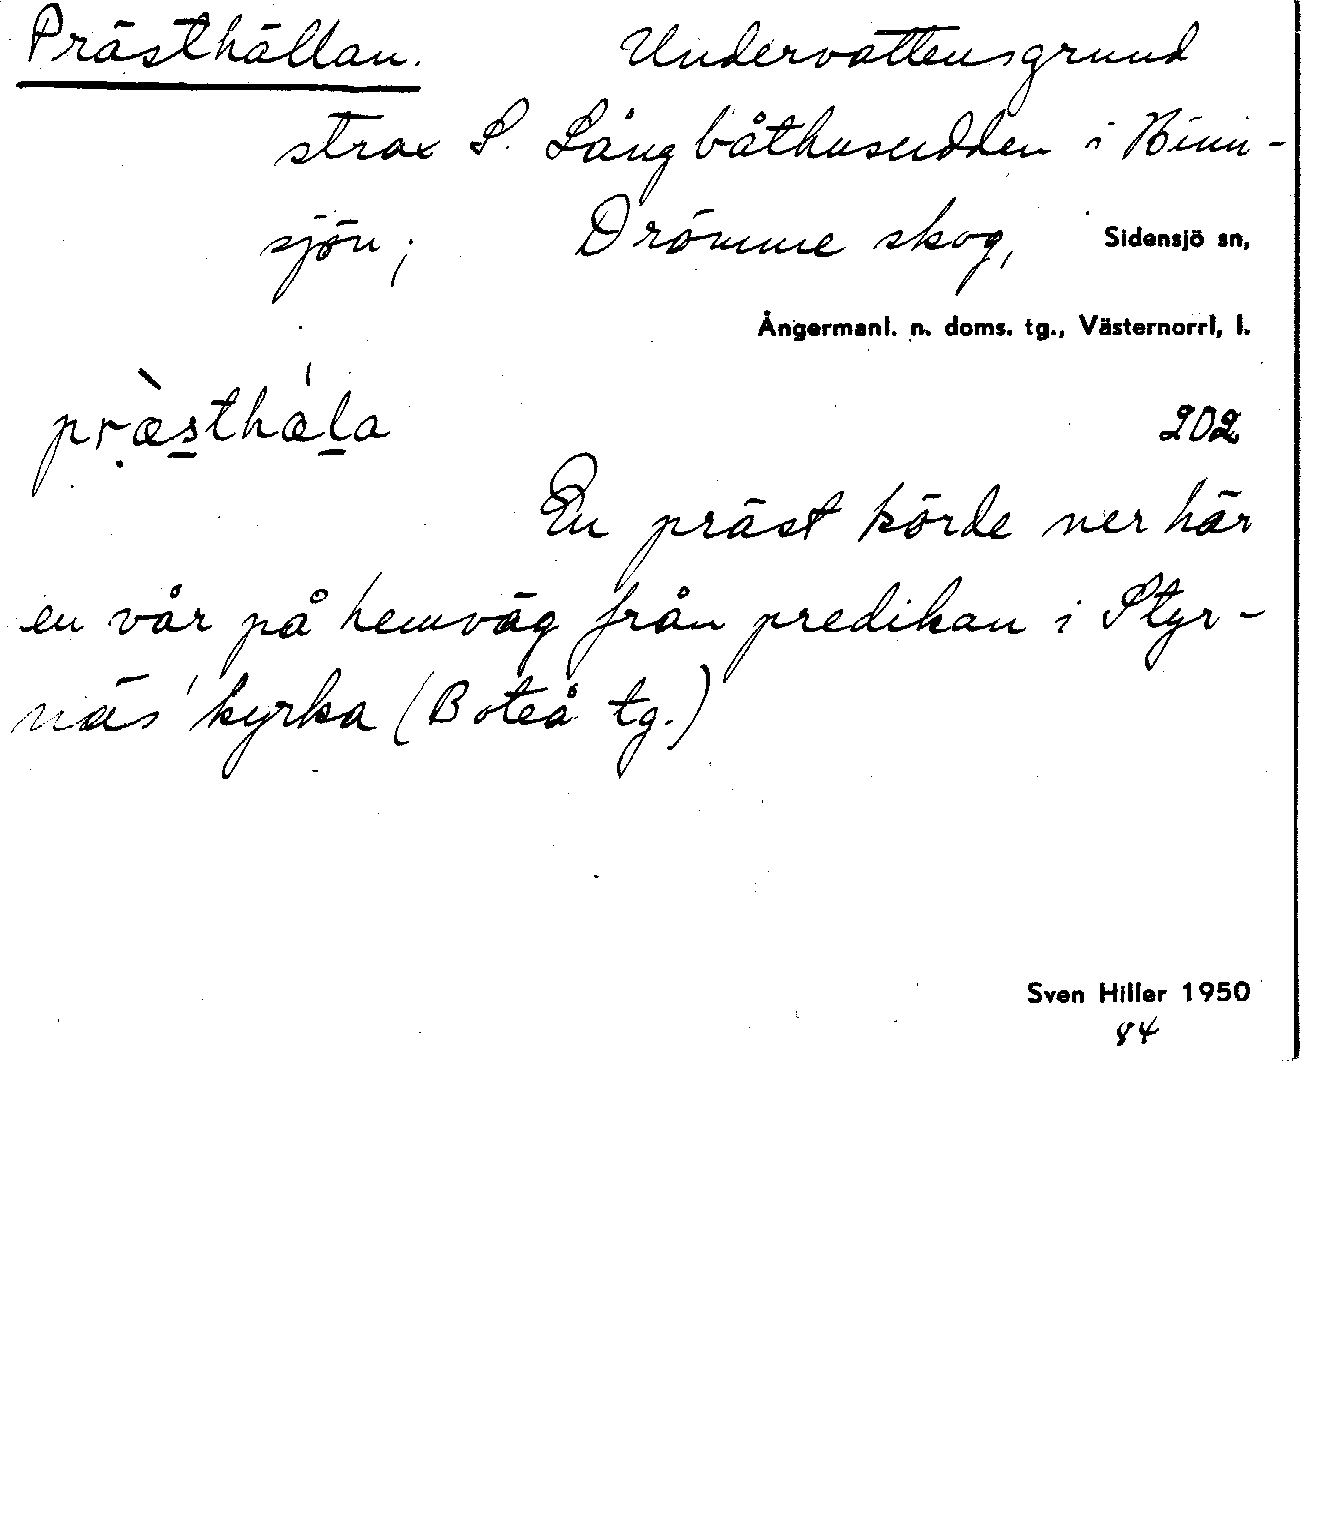 Prästhällan. Undervattensgrund
strax S. Långbåthusudden i Binn-
sjön; Drömme skog, Sidensjö sn,
Ångermanl. n. doms. tg., Västernorrl, l.
præ̀sthæ̍la 202
En präst körde ner här
en vår på hemväg från predikan i Styr-
näs' kyrka (Boteå tg.)
Sven Hiller 1950
84